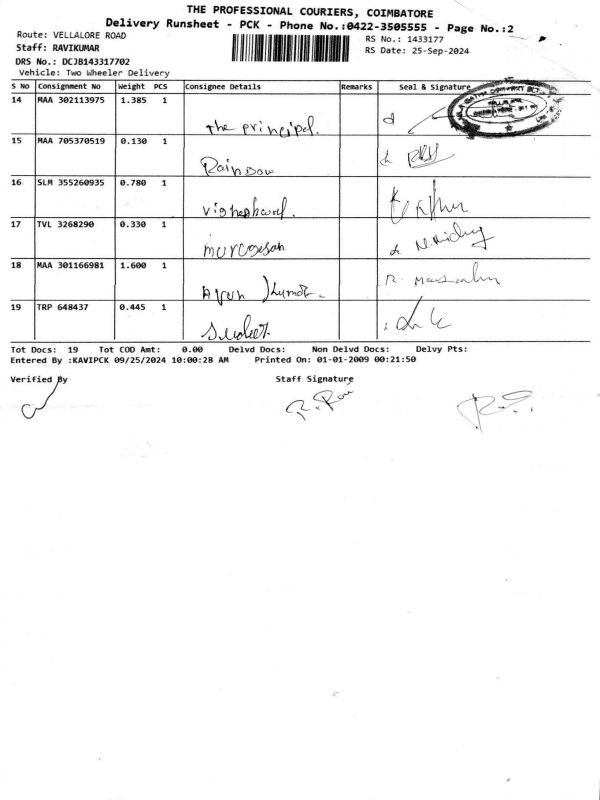 THE PROFESSIONAL COURIERS, COIMBATORE
Delivery Runsheet - PCK - Phone No.:0422-3505555 - Page No.:2
Route: VELLALORE ROAD
RS No.: 1433177
Staff: RAVIKUMAR
RS Date: 25-Sep-2024
DRS No.: DCJB143317702
Vehicle: Two Wheeler Delivery
S NO Consignment No Weight PCS Consignee Details Remarks Seal & Signature
14 MAA 302113975 1.385 1
The principal.
15 MAA 705370519 0.130 1
Rainbow
16 SLM 355260935 0.780 1
17 TVL 3268290 0.330 1
murugesan
18 MAA 301166981 1.600 1
Arun
19 TRP 648437 0.445 1
Tot Docs: 19 Tot COD Amt: 0.00 Delvd Docs: Non Delvd Docs: Delvy Pts:
Entered By :KAVIPCK 09/25/2024 10:00:28 AM Printed On: 01-01-2009 00:21:50
Verified By Staff Signature